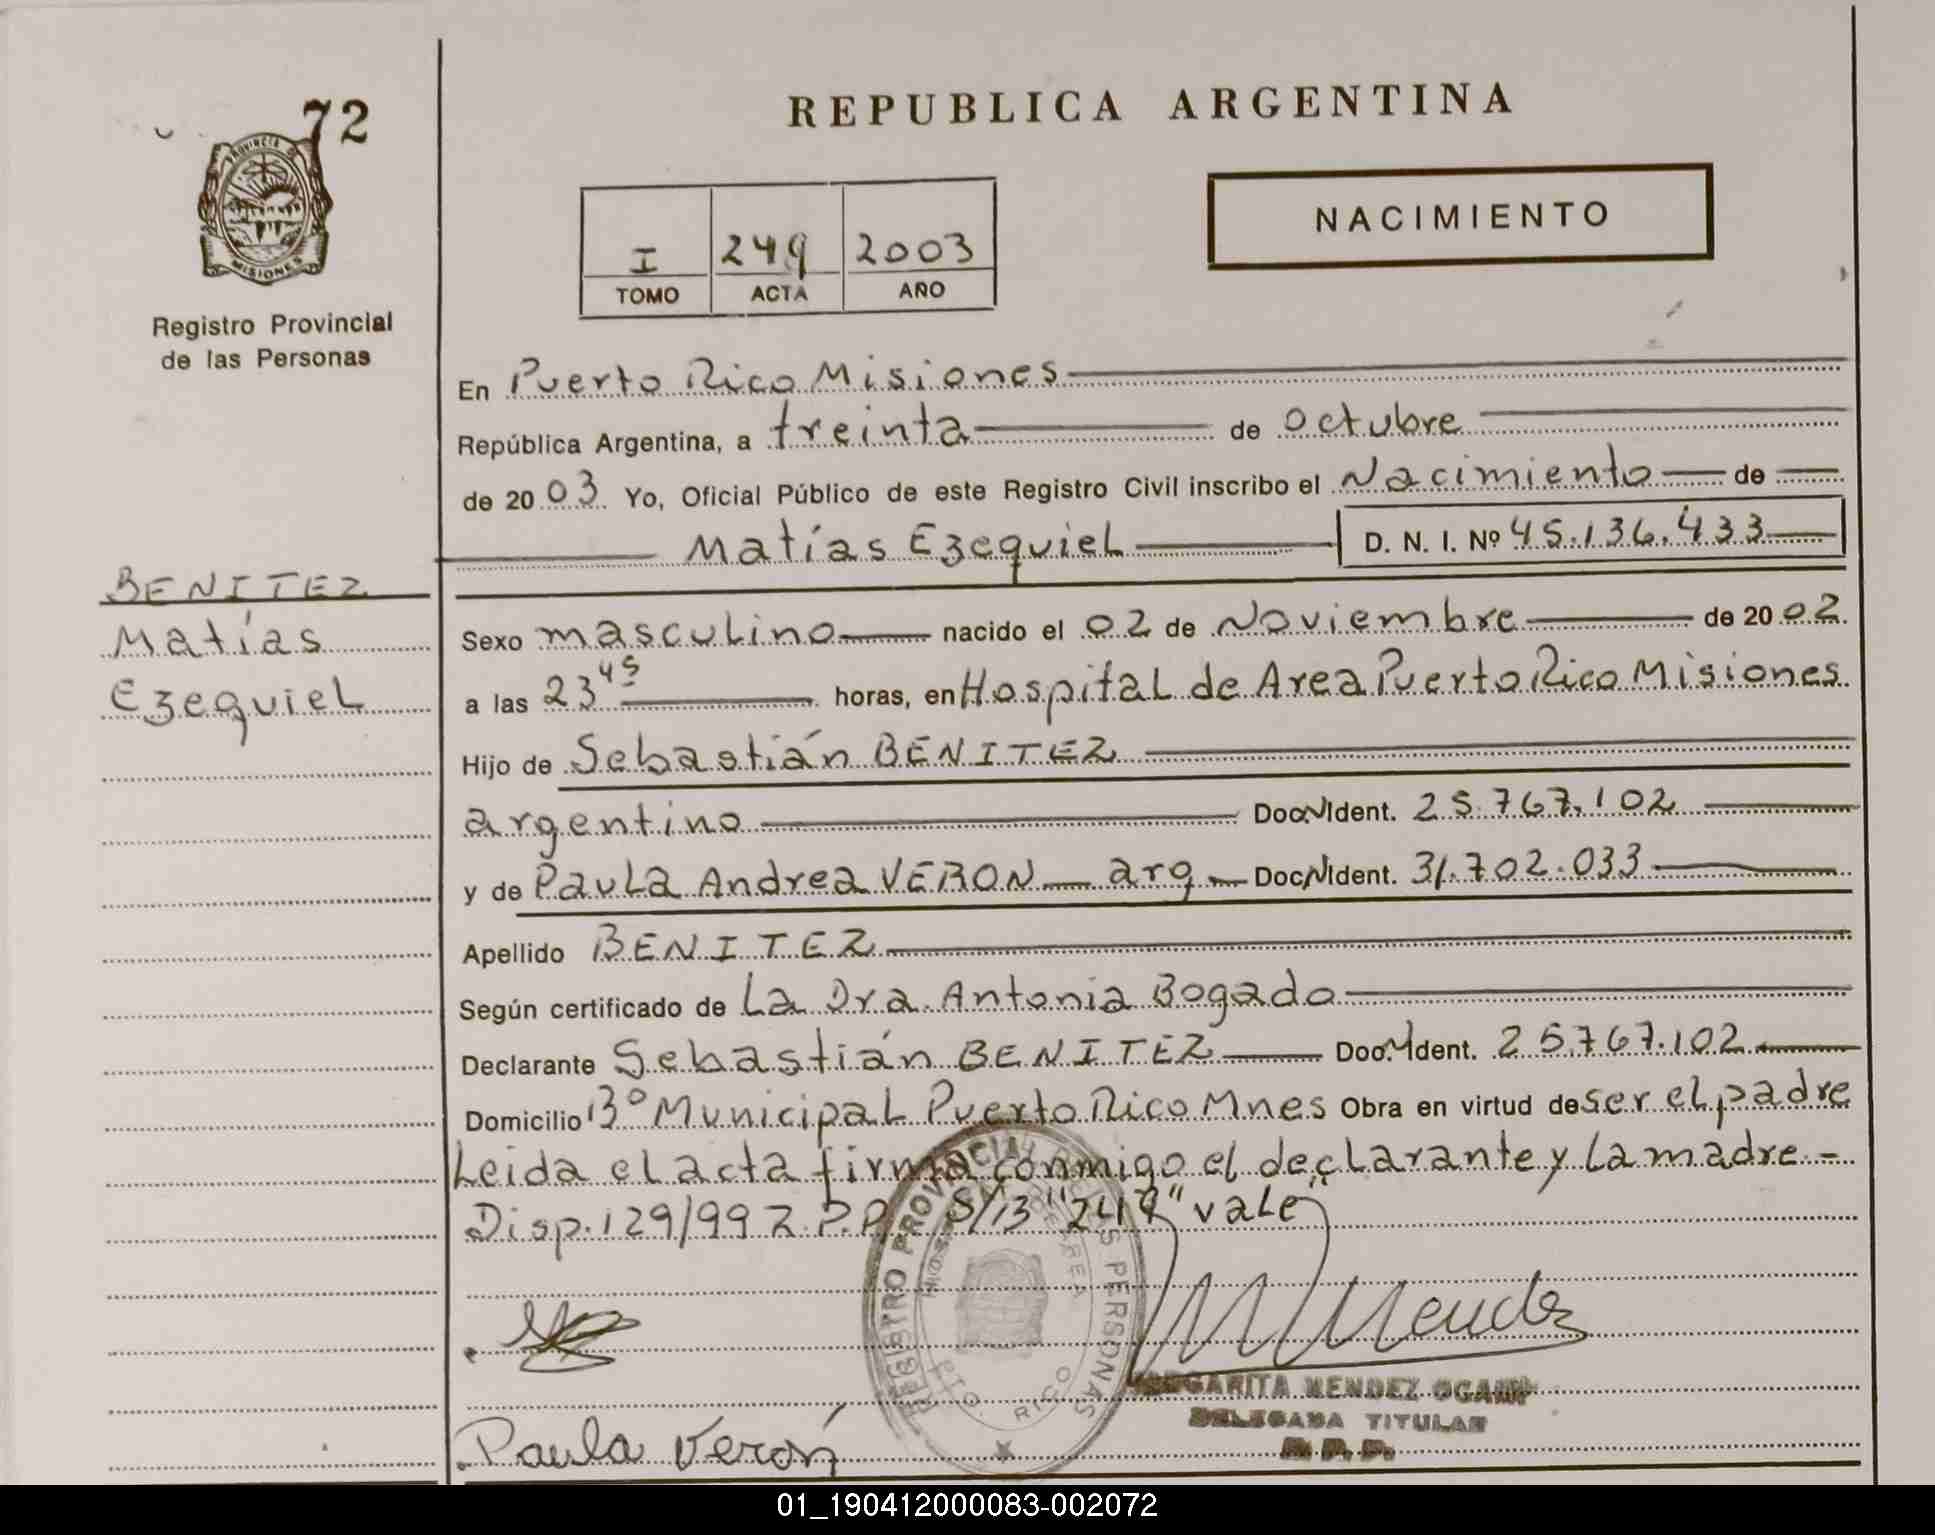 72
PROVINCIA DE
MISIONES
Registro Provincial
de las Personas
REPUBLICA ARGENTINA
NACIMIENTO
I 249 2003
TOMO ACTA AÑO
En Puerto Rico Misiones
República Argentina, a treinta de Octubre
de 2003 Yo, Oficial Público de este Registro Civil inscribo el Nacimiento de
Matías Ezequiel D. N. I. Nº 45.136.433
BENITEZ
Matías
Ezequiel
Sexo masculino nacido el 02 de Noviembre de 2002
a las 23 45 horas, en Hospital de Area Puerto Rico Misiones
Hijo de Sebastián BENITEZ
argentino Doc. Ident. 25.767.102
y de Paula Andrea VERON arg Doc. Ident. 31.702.033
Apellido BENITEZ
Según certificado de La Dra. Antonia Bogado
Declarante Sebastián BENITEZ Doc. Ident. 25.767.102
Domicilio Bº Municipal Puerto Rico Mnes Obra en virtud de ser el padre
Leida el acta firma conmigo el declarante y la madre.-
Disp. 129/99 R.P.P. S/B "249" vale
REGISTRO PROVINCIAL DE LAS PERSONAS
PTO. RICO
M Mendez
MARGARITA MENDEZ
DELEGADA TITULAR
R.P.P.
Paula Verón
01_190412000083-002072